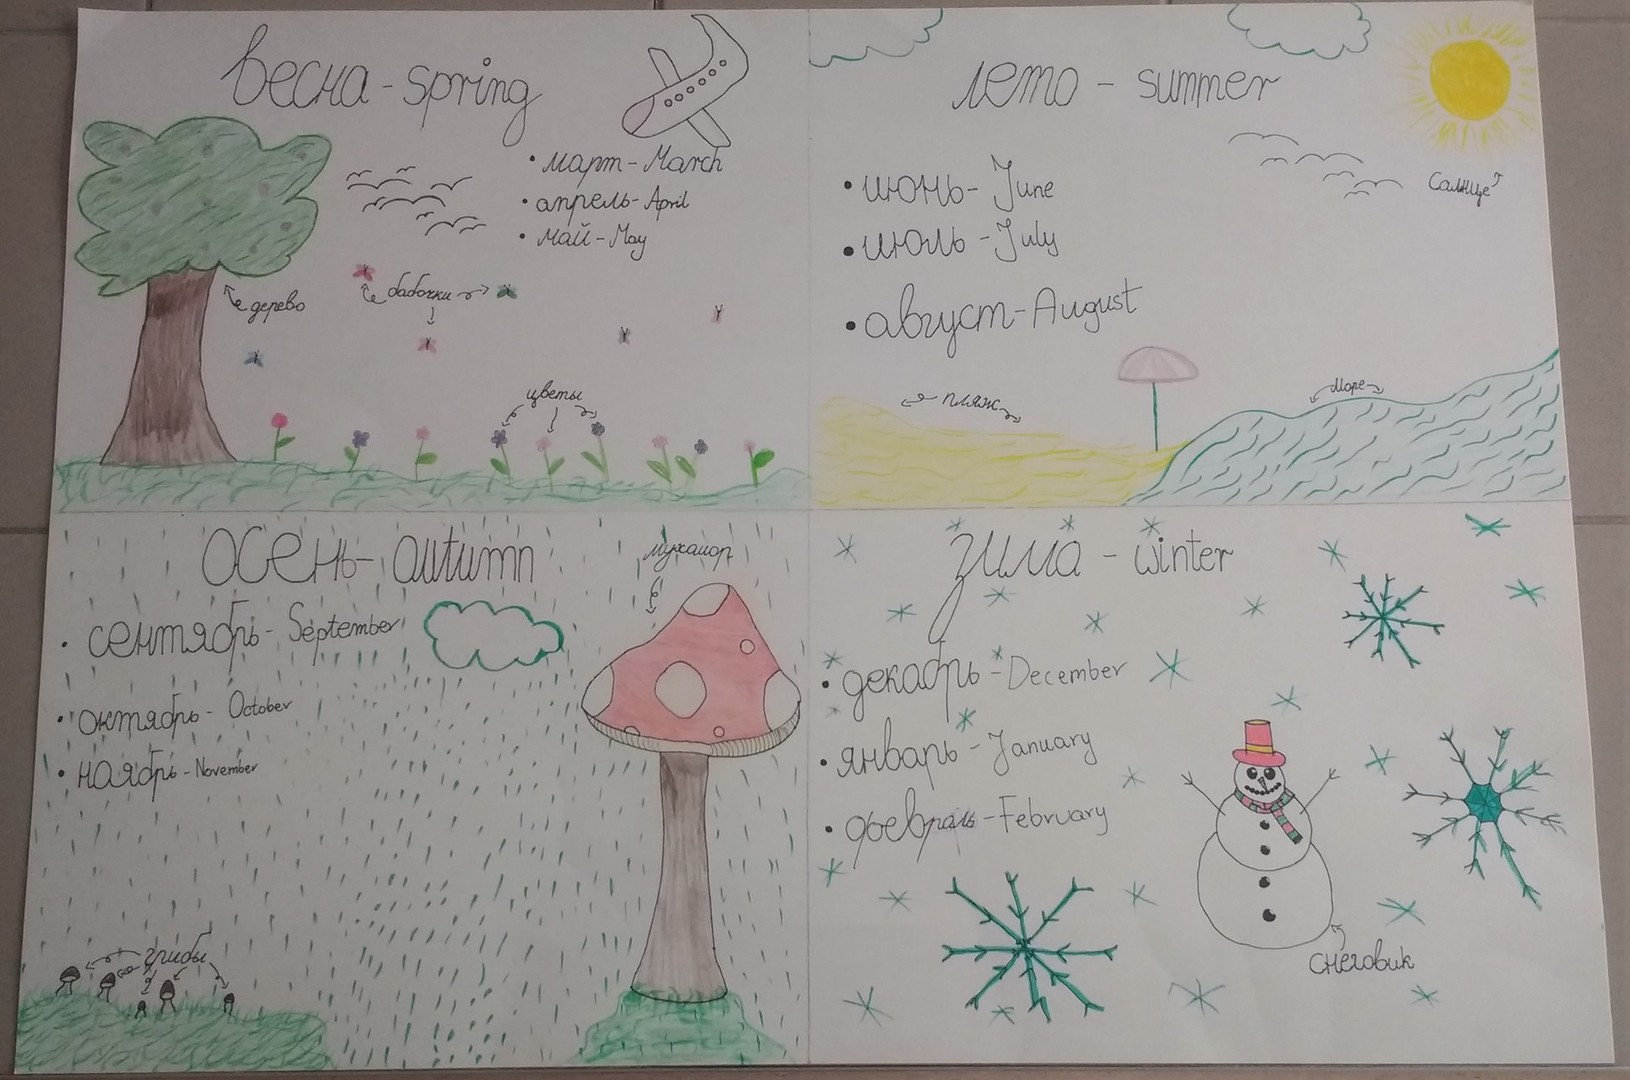 весна - spring
• март - March
• апрель - April
• май - May
дерево
бабочки
цветы
лето - summer
• июнь - June
• июль - July
• август - August
Солнце
пляж
море
осень - autumn
• сентябрь - September
• октябрь - October
• ноябрь - November
мухамор
грибы
зима - winter
• декабрь - December
• январь - January
• февраль - February
снеговик